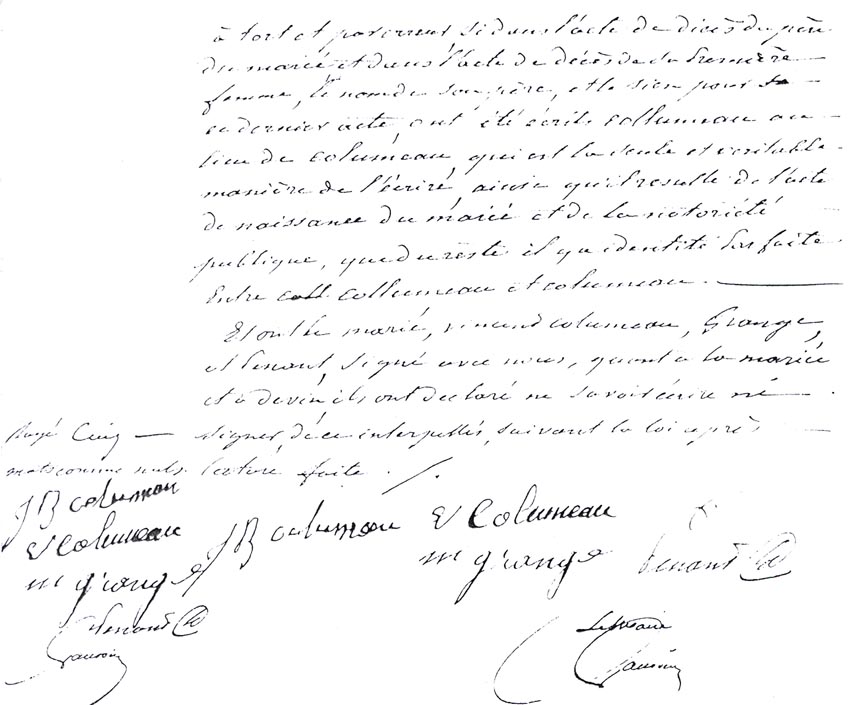 à tort et par erreur si dans l'acte de décès du père
du marié et dans l'acte de décès de sa première
femme, le nom de son père, et le sien pour
ce dernier acte, ont été écrits collumeau au
lieu de columeau, qui est la seule et veritable
manière de l'écrire, ainsi qu'il resulte de l'acte
de naissance du marié et de la notoriété
publique, que du reste il y a identité parfaite
Entre coll collumeau et columeau.
Et ont le marié, vincent columeau, Grange,
et benant, signé avec nous, quant à la mariée
et à devin ils ont declaré ne savoir écrire ni
signer, de ce interpellés, suivant la loi après
Rayé Cinq
mots comme nuls.
lecture faite.
JB columeau
V Columeau
m grange
benant
JB columeau
V Columeau
m grange
benant
Le Maire